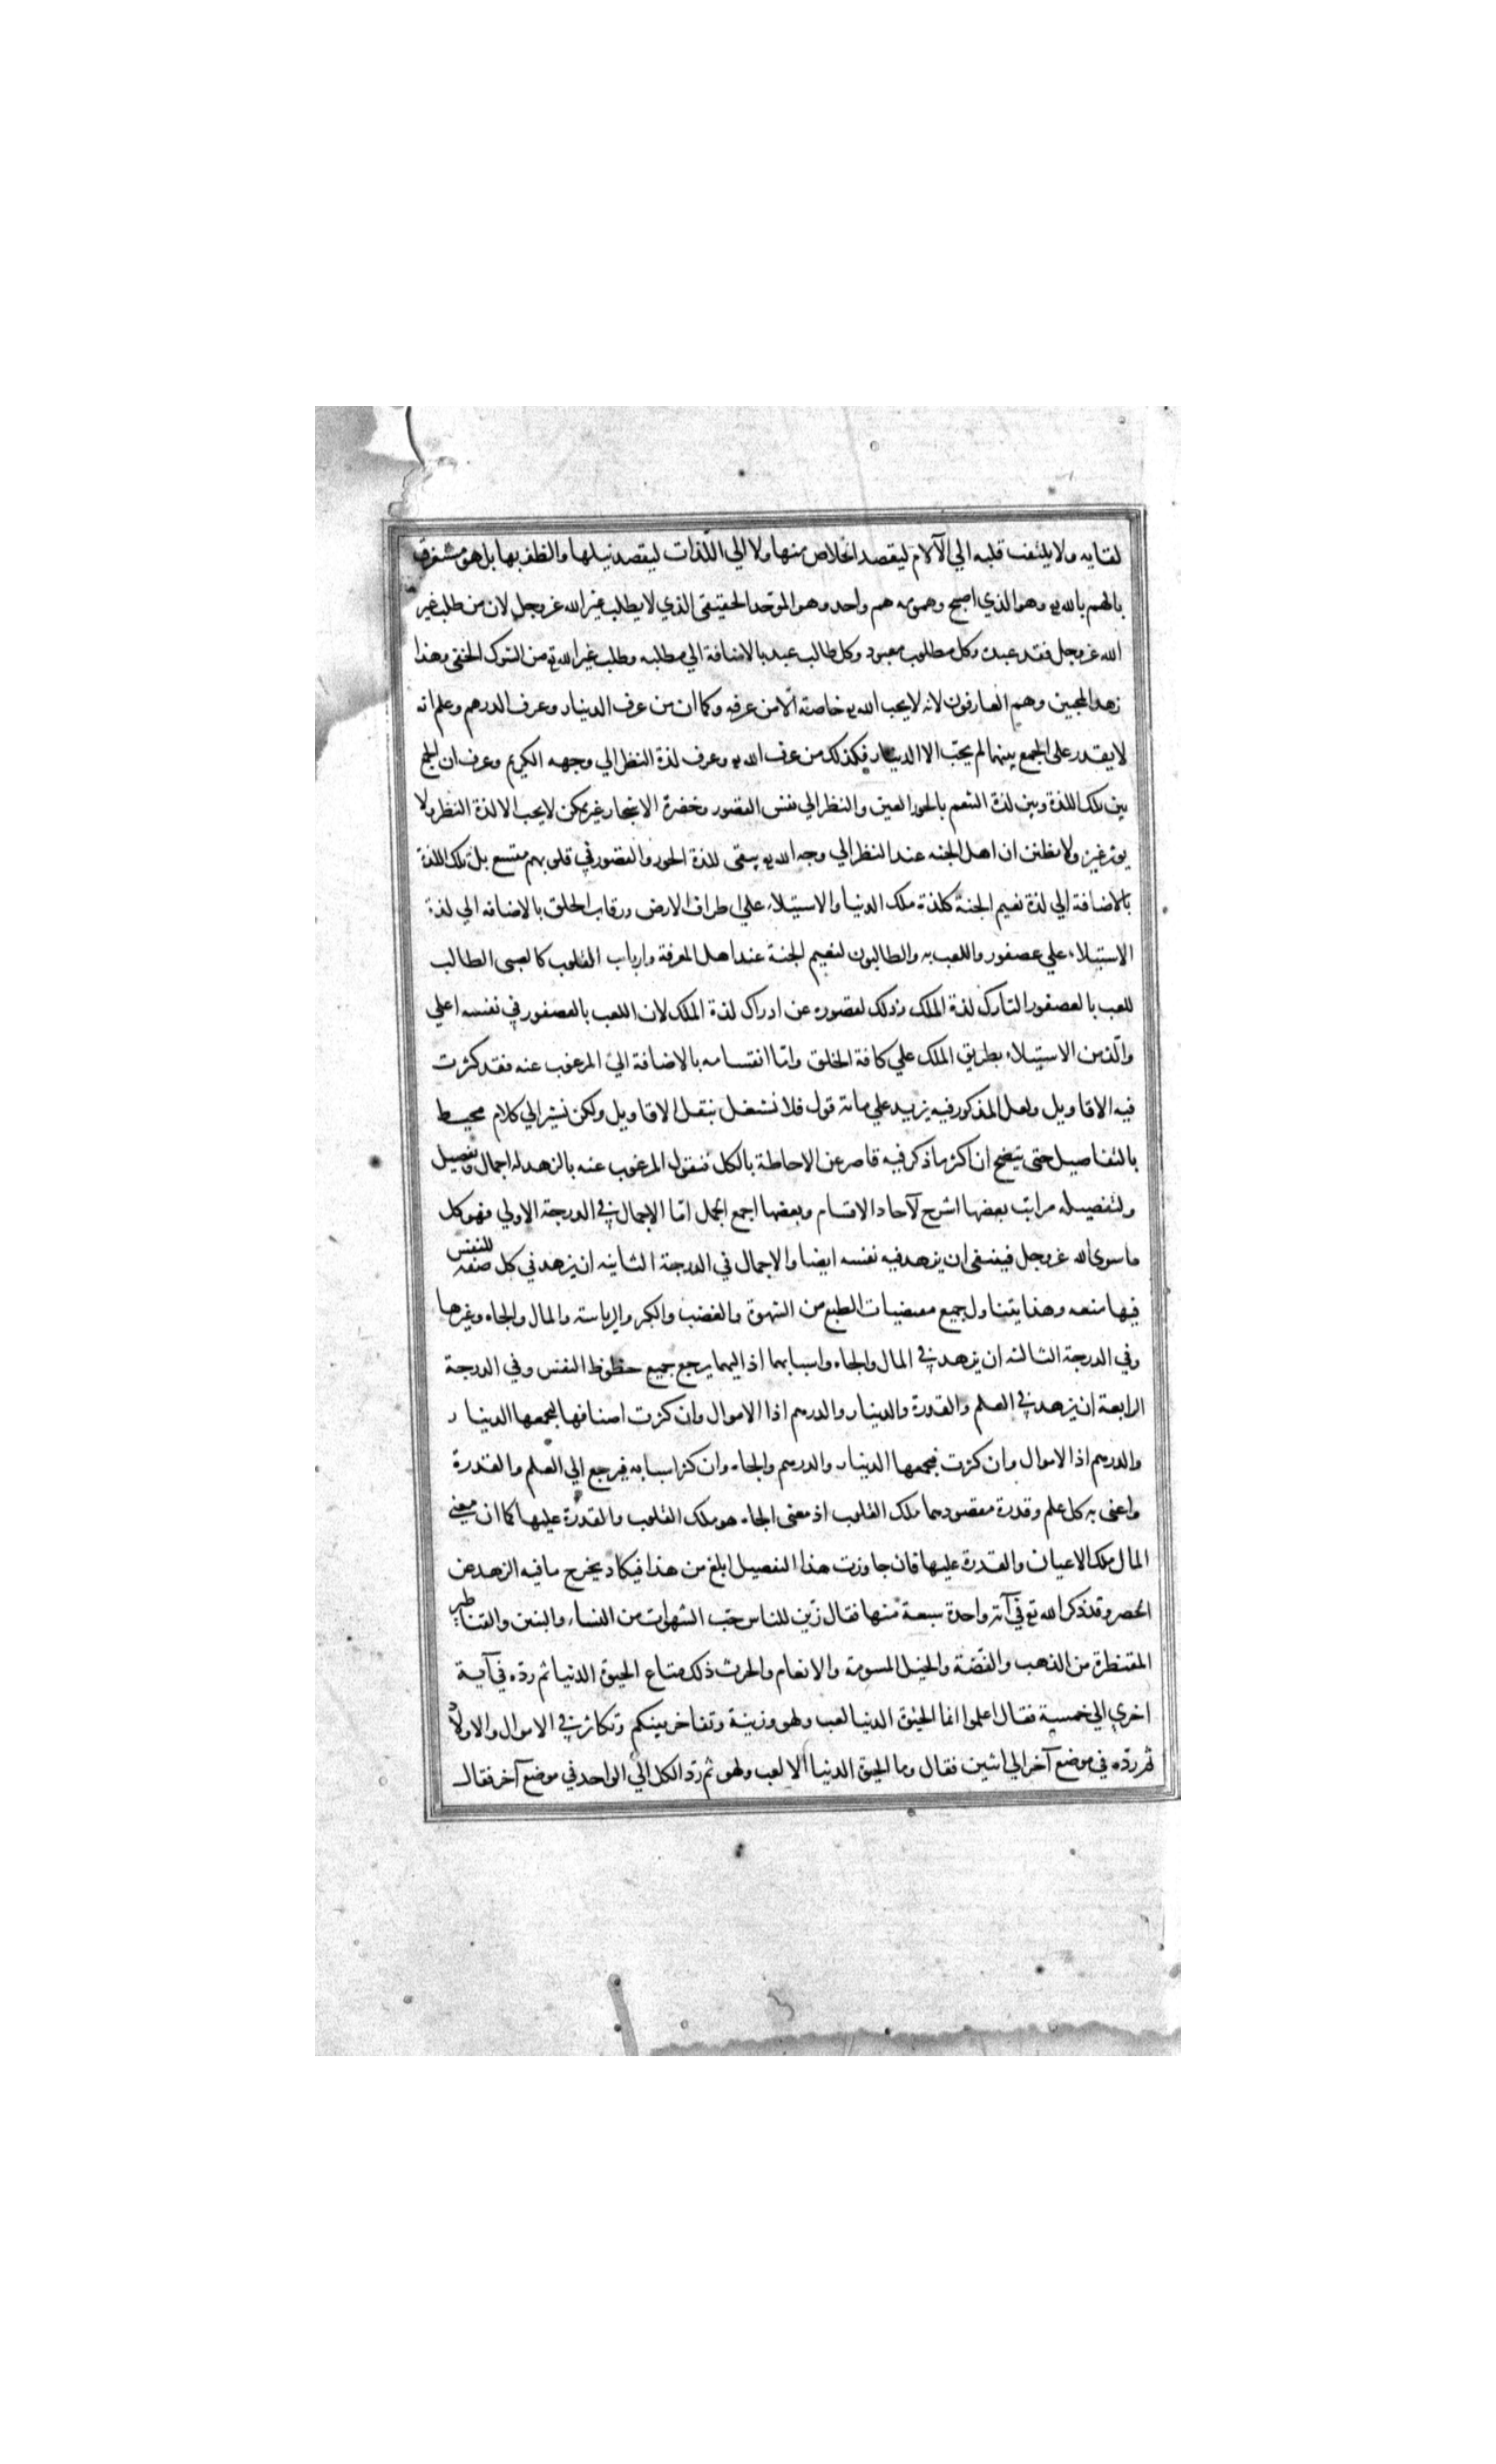 لقايه ولا يلتفت قلبه الي الآلام ليقصد الخلاص منها ولا الي اللّذات ليقصد نيلها والظفر بها بل هو مستغرق
بالهم بالله تع وهو الذي اصبح وهمومه هم واحد وهو الموحّد الحقيقى الذي لا يطلب غير الله عز وجل لان من طلب غير
الله عز وجل فقد عبده وكل مطلوب معبود وكل طالب عبد بالاضافة الي مطلبه وطلب غير الله تع من الشرك الخفى وهذا
زهد المحبين وهم العارفون لانه لا يحب الله تع خاصة الّا من عرفه وكما ان من عرف الدينار وعرف الدرهم وعلم انه
لا يقدر على الجمع بينهما لم يحبّ الا الدينار فكذلك من عرف الله تع وعرف لذة النظر الي وجهه الكريم وعرف ان الجمع
بين تلك اللذة وبين لذة التنعم بالحور العين والنظر الي نقش القصور وخضرة الاشجار غير ممكن لا يحب الا لذة النظر ولا
يوثر غيره ولا تظنن ان اهل الجنه عند النظر الي وجه الله تع يبقى للذة الحور والقصور في قلوبهم متسع بل تلك اللذة
بالاضافة الي لذة نعيم الجنة كلذة ملك الدنيا والاستيلاء علي اطراف الارض ورقاب الخلق بالاضافه الي لذة
الاستيلاء علي عصفور واللعب به والطالبون لنعيم الجنة عند اهل المعرفة وارباب القلوب كالصبى الطالب
للعب بالعصفور التارك لذة الملك وذلك لقصوره عن ادراك لذة الملك لان اللعب بالعصفور في نفسه اعلي
والّذ من الاستيلاء بطريق الملك علي كافة الخلق وامّا انقسامه بالاضافة الي المرغوب عنه فقد كثرت
فيه الاقاويل ولعل المذكور فيه يزيد علي مائة قول فلا نشغل بنقل الاقاويل ولكن نشير الي كلام محيط
بالتفاصيل حتى يتضح ان اكثر ما ذكر فيه قاصر عن الاحاطة بالكل فنقول المرغوب عنه بالزهد له اجمال وتفصيل
ولتفصيله مراتب بعضها اشرح لآحاد الاقسام وبعضها اجمع للجمل امّا الاجمال في الدرجة الاولي فهو كل
ما سوى الله عز وجل فينبغى ان يزهد فيه نفسه ايضا والاجمال في الدرجة الثانيه ان يزهد في كل صفة للنفس
فيها متعه وهذا يتناول جميع مقتضيات الطبع من الشهوة والغضب والكبر والرياسة والمال والجاه وغيرها
وفي الدرجة الثالثه ان يزهد في المال والجاه واسبابهما اذ اليهما يرجع جميع حظوظ النفس وفي الدرجة
الرابعة ان يزهد في العلم والقدرة والدينار والدرهم اذا الاموال وان كثرت اصنافها يجمعها الدينار
والدرهم اذ الاموال وان كثرت فيجمعها الدينار والدرهم والجاه وان كثر اسبابه فيرجع الي العلم والقدرة
واعنى به كل علم وقدرة مقصودهما ملك القلوب اذ معنى الجاه هو ملك القلوب والقدرة عليها كما ان معني
المال ملك الاعيان والقدرة عليها فان جاوزت هذا التفصيل ابلغ من هذا فيكاد يخرج ما فيه الزهد عن
الحصر وقد ذكر الله تع في آية واحدة سبعة منها فقال زيّن للناس حبّ الشهوات من النساء والبنين والقناطير
المقنطرة من الذهب والفضّة والخيل المسومة والانعام والحرث ذلك متاع الحيوة الدنيا ثم ردّه في آية
اخري الي خمسية فقال اعلموا انما الحيوة الدنيا لعب ولهو وزينة وتفاخر بينكم وتكاثر في الاموال والاولاد
ثم ردّه في موضع آخر الي اثنين فقال وما الحيوة الدنيا الا لعب ولهو ثم ردّ الكل الي الواحد في موضع آخر فقال